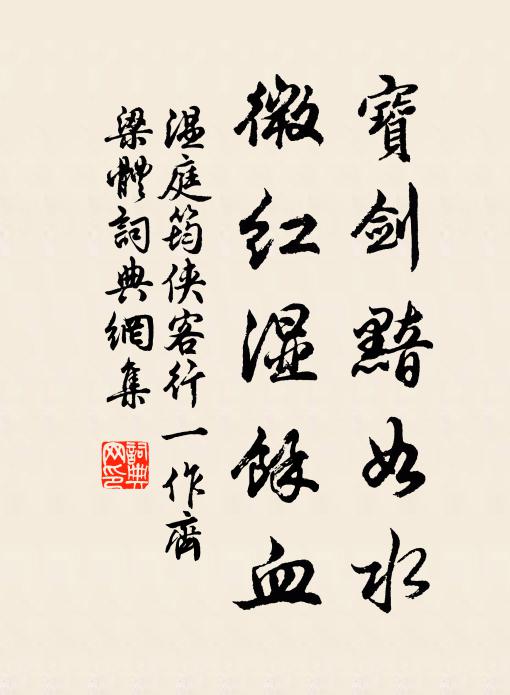 寶劍黯如水
微紅濕餘血
温庭筠俠客行一作齊
梁體詞典網集
詞典
网印